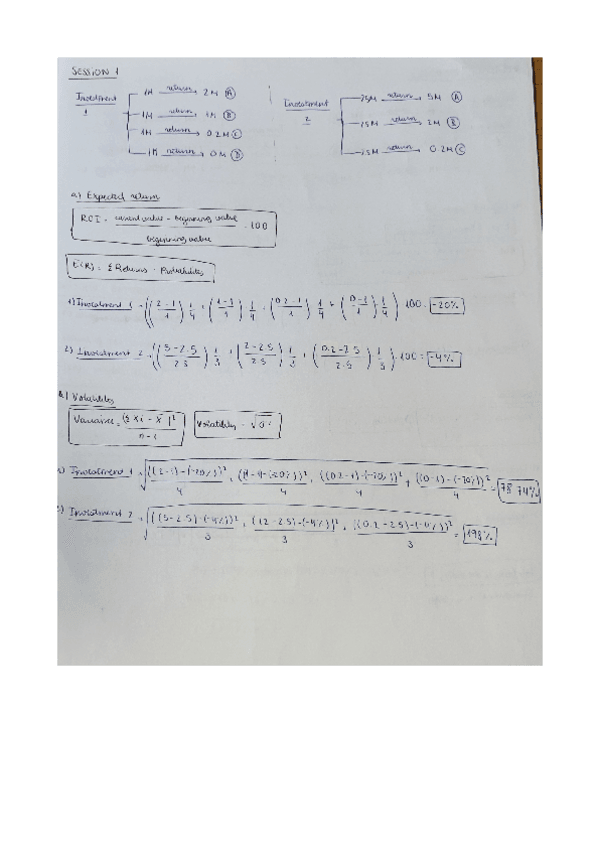 SESSION 1
Investment 1
1M return → 2M (A)
1M return → 1M (B)
1M return → 0.2M (C)
1M return → 0M (D)
Investment 2
2.5M return → 5M (A)
2.5M return → 2M (B)
2.5M return → 0.2M (C)
a) Expected return
ROI = current value - beginning value / beginning value · 100
E(R) = Σ Returns · Probabilities
1) Investment 1 = ((2-1/1) 1/4 + (1-1/1) 1/4 + (0.2-1/1) 1/4 + (0-1/1) 1/4) · 100 = -20%
2) Investment 2 = ((5-2.5/2.5) 1/3 + (2-2.5/2.5) 1/3 + (0.2-2.5/2.5) 1/3) · 100 = -4%
b) Volatilities
Variance = (Σ Xi - X̄)² / n-1
Volatilities = √σ²
1) Investment 1 = √ ((2-1)-(-20%))² / 4 + (1-1-(-20%))² / 4 + ((0.2-1)-(-20%))² / 4 + ((0-1)-(-20%))² / 4 = 78.74%
2) Investment 2 = √ ((5-2.5)-(-4%))² / 3 + ((2-2.5)-(-4%))² / 3 + ((0.2-2.5)-(-4%))² / 3 = 198%